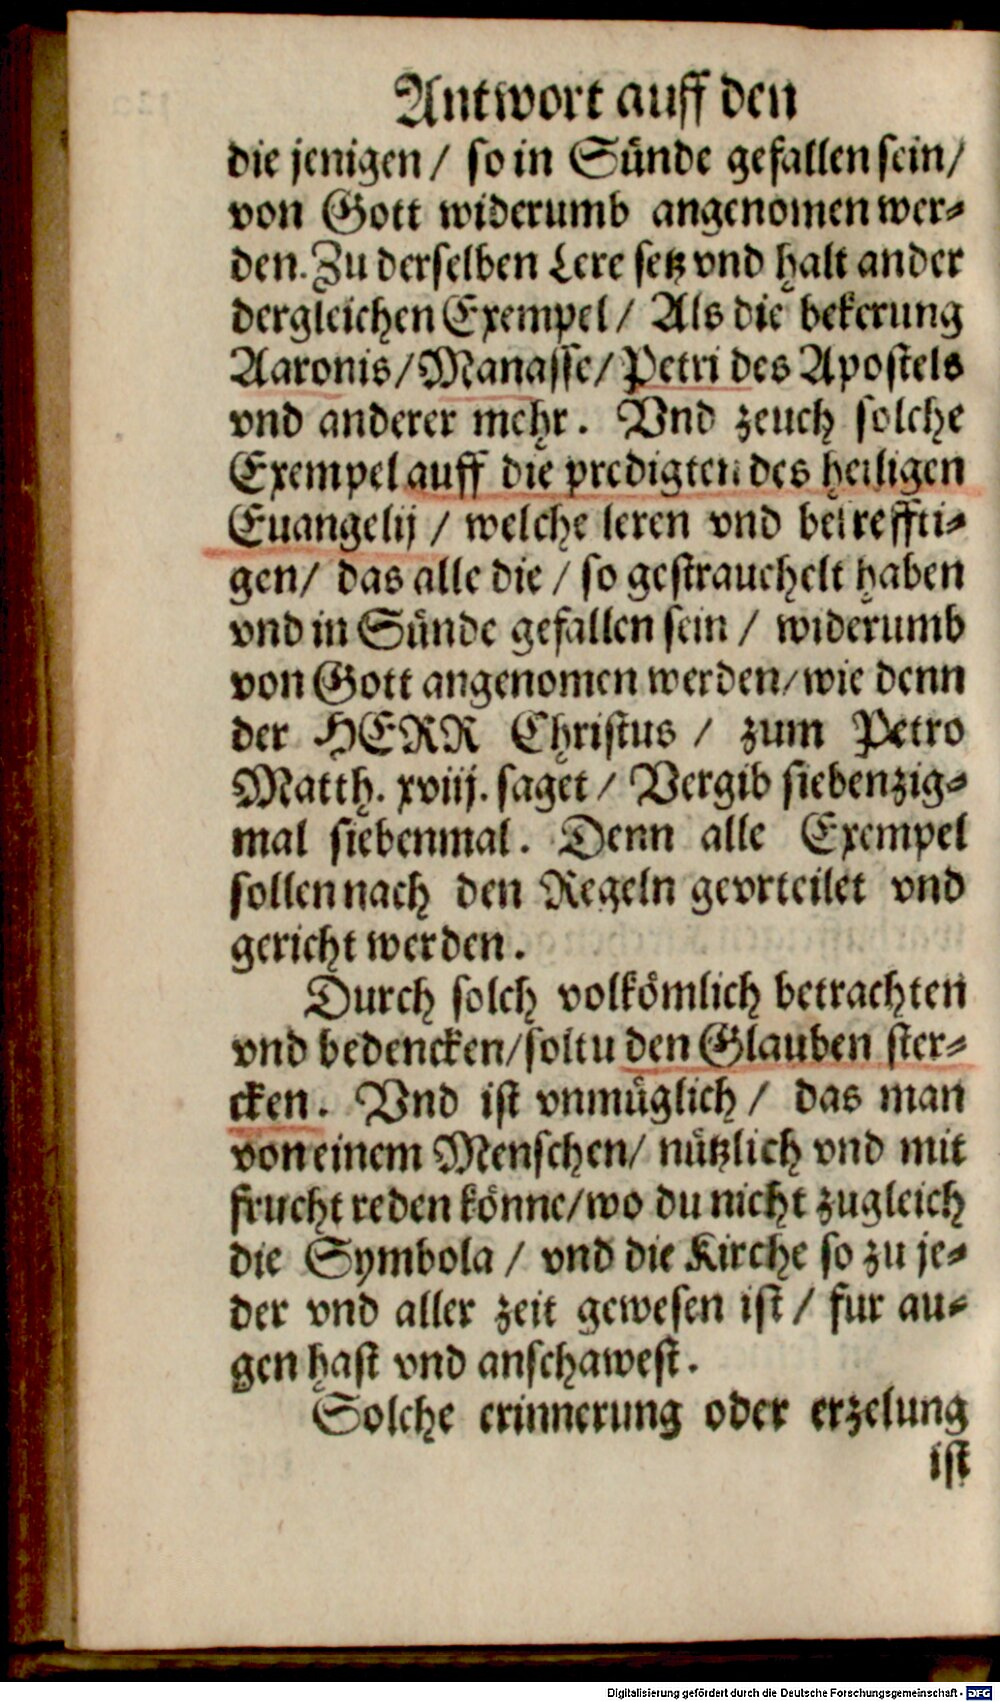 Antwort auff den
die jenigen / so in Sünde gefallen sein /
von Gott widerumb angenomen wer-
den. Zu derselben Lere setz vnd halt ander
dergleichen Exempel / Als die bekerung
Aaronis / Manasse / Petri des Apostels
vnd anderer mehr. Vnd zeuch solche
Exempel auff die predigten des heiligen
Euangelij / welche leren vnd bekreffti-
gen / das alle die / so gestrauchelt haben
vnd in Sünde gefallen sein / widerumb
von Gott angenomen werden / wie denn
der HERR Christus / zum Petro
Matth. xviij. saget / Vergib siebenzig-
mal siebenmal. Denn alle Exempel
sollen nach den Regeln gevrteilet vnd
gericht werden.
Durch solch volkömlich betrachten
vnd bedencken / soltu den Glauben ster-
cken. Vnd ist vnmüglich / das man
von einem Menschen / nützlich vnd mit
frucht reden könne / wo du nicht zugleich
die Symbola / vnd die Kirche so zu je-
der vnd aller zeit gewesen ist / fur au-
gen hast vnd anschawest.
Solche erinnerung oder erzelung
ist
Digitalisierung gefördert durch die Deutsche Forschungsgemeinschaft - DFG